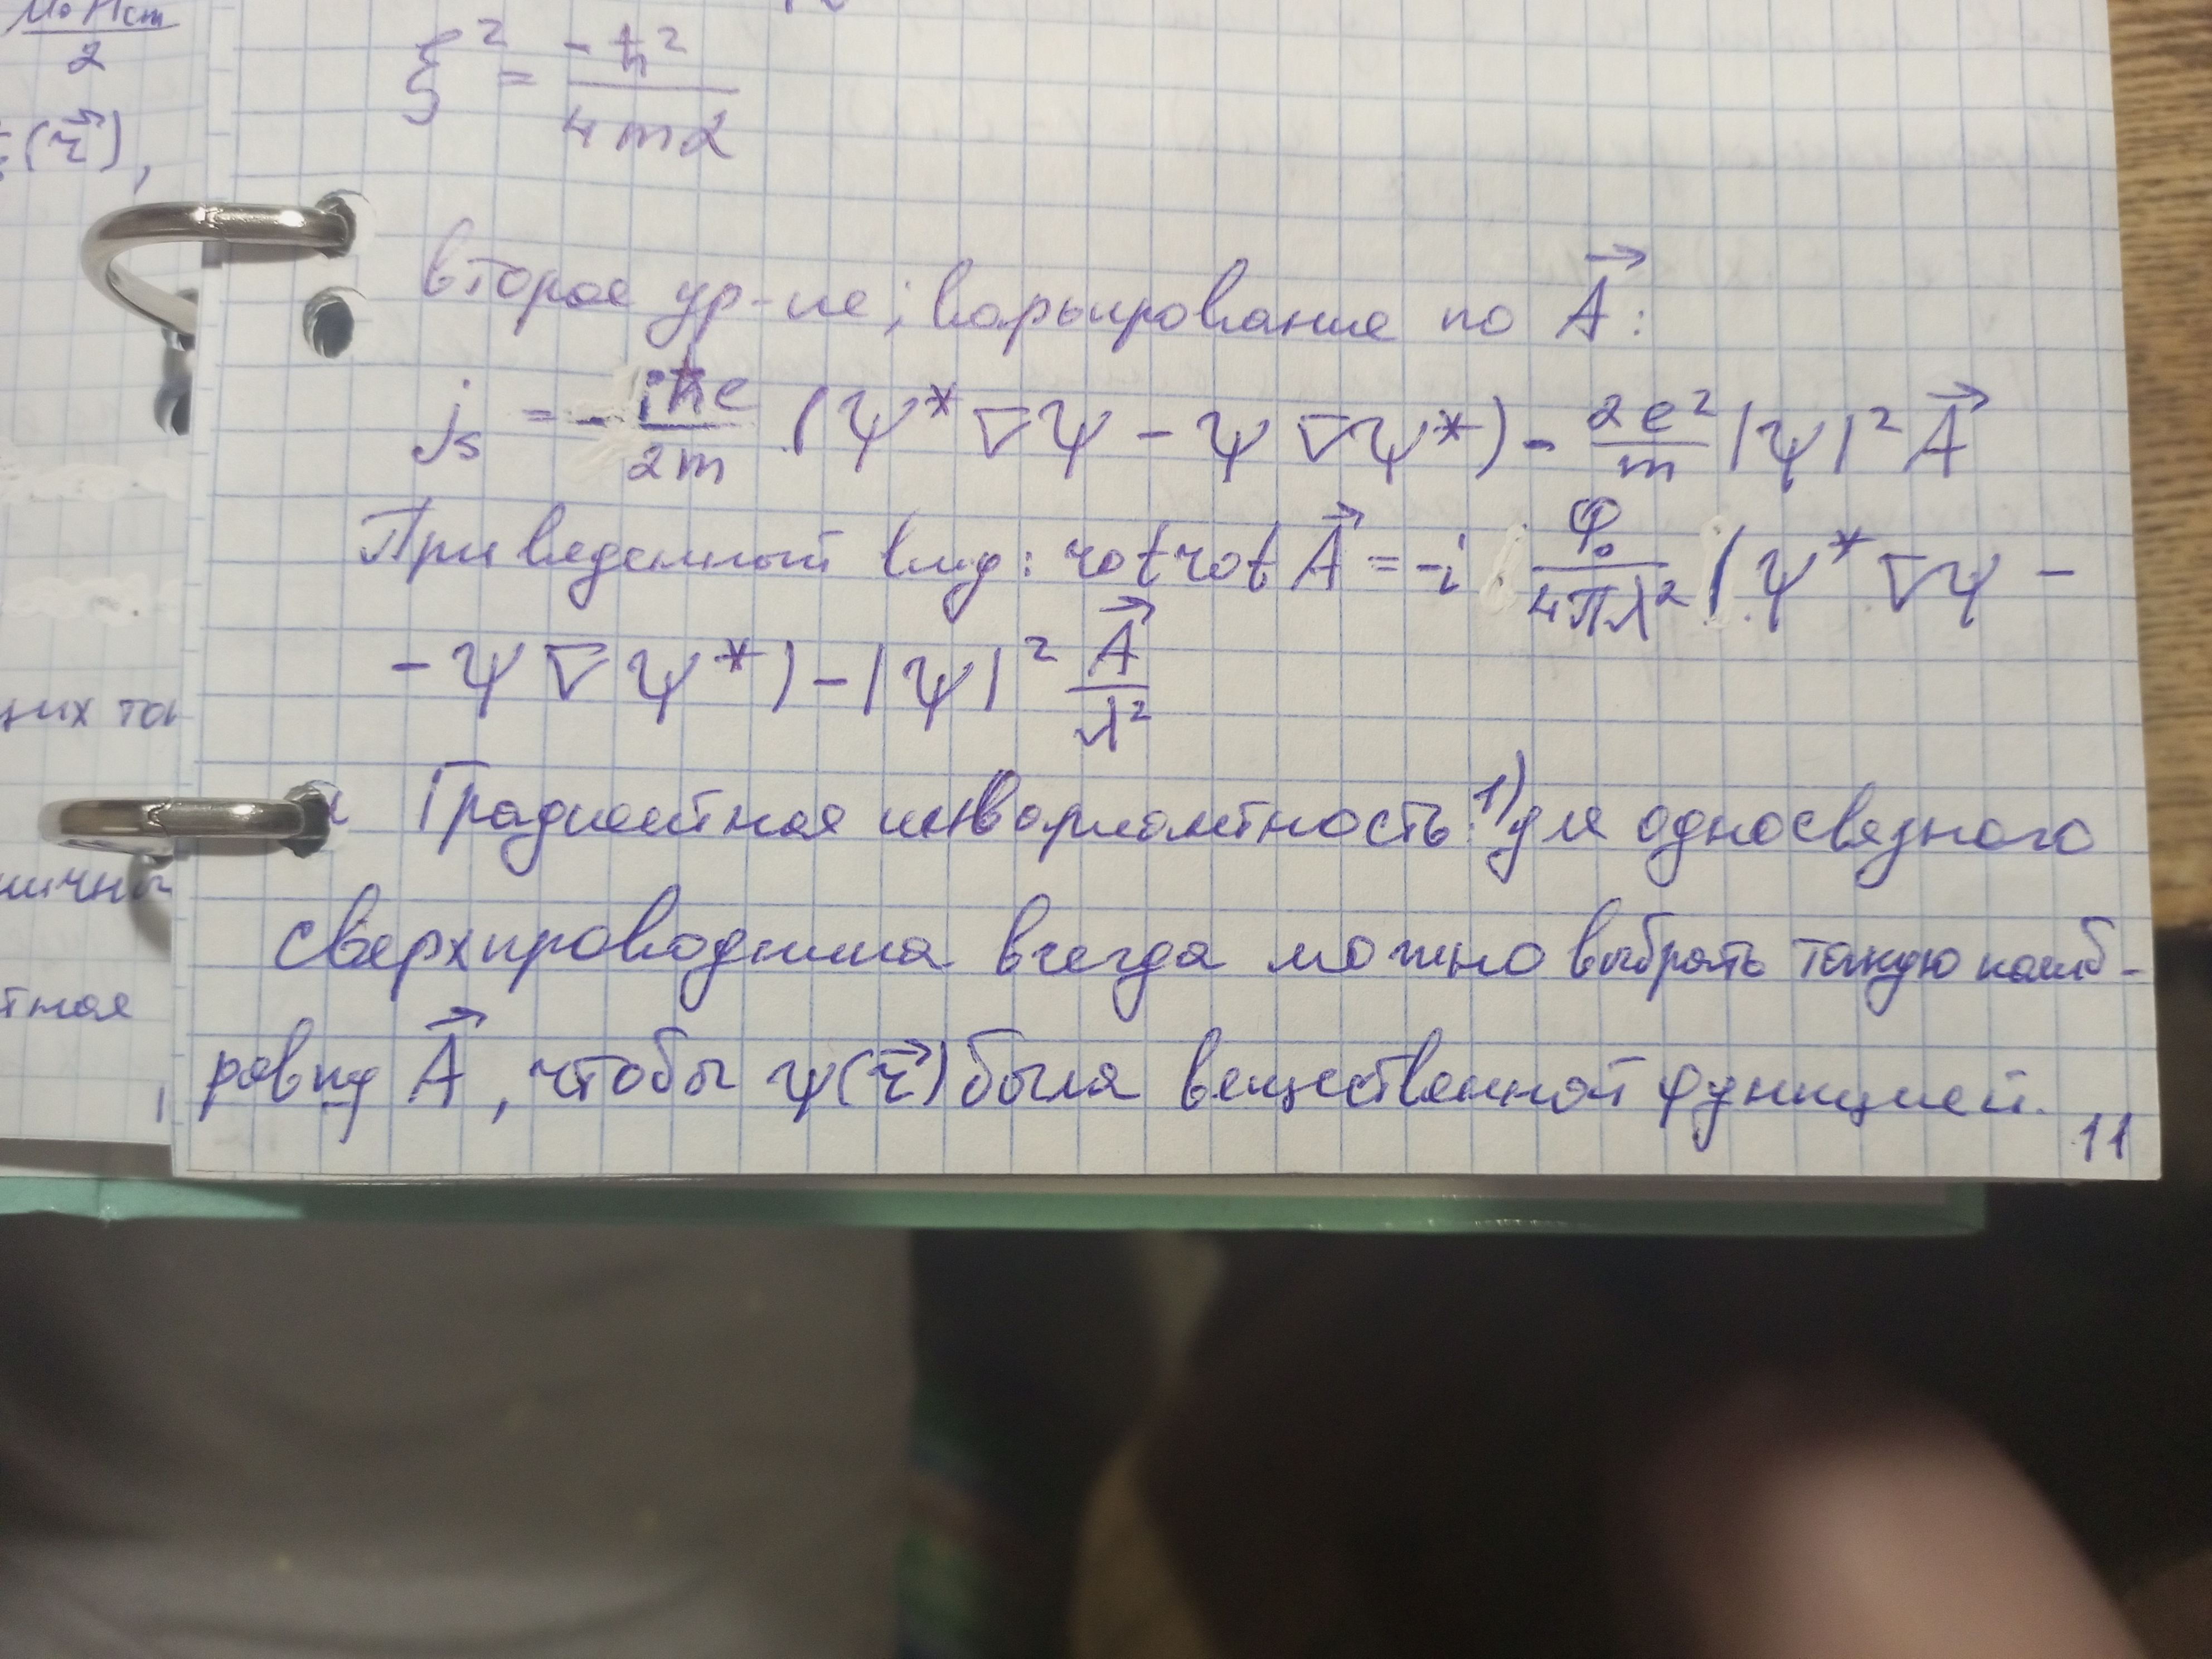 μ₀Hcm
2
(r⃗),
щих ток
ничны
тная
ξ² = -ħ² / 4mα
второе ур-ие; варьирование по A⃗:
js = - iħe / 2m (ψ* ∇ψ - ψ ∇ψ*) - 2e² / m |ψ|² A⃗
Приведенный вид: rot rot A⃗ = -i Φ₀ / 4πλ² (ψ* ∇ψ -
- ψ ∇ψ*) - |ψ|² A⃗ / λ²
Градиентная инвариантность: 1) для односвязного
сверхпроводника всегда можно выбрать такую калиб-
ровку A⃗, чтобы ψ(r⃗) была вещественной функцией.
11